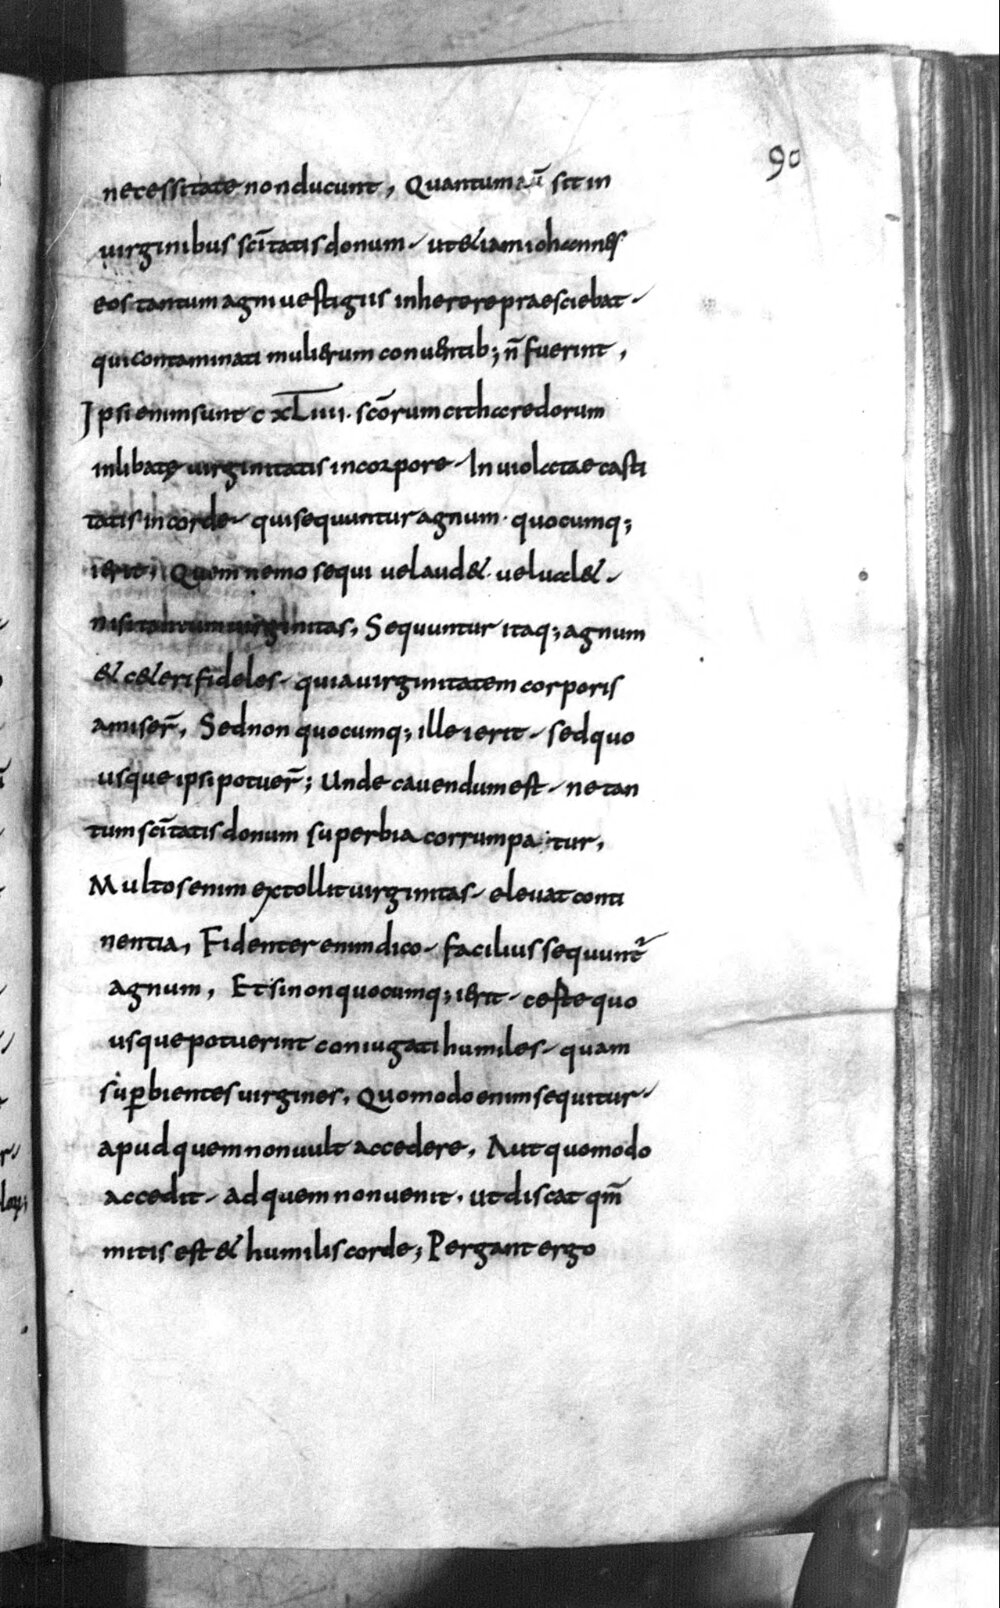 90
necessitate non ducunt, Quantum aū sit in
uirginibus sc̄itatis donum- ut &iam iohannes
eos tantum agni uestigiis inherere praesciebat-
qui contaminati mulierum conuentib; n̄ fuerint,
Ipsi enim sunt c xLiiii. scōrum cithaeredorum
inlibatę uirginitatis in corpore- In uiolatae casti
tatis in corde- qui sequuntur agnum. quocumq;
ierit, Quem nemo sequi uel aud&. uel ual&-
nisi tantum uirginitas, Sequuntur itaq; agnum
& c&eri fideles- quia uirginitatem corporis
amiser̄, Sed non quocumq; ille ierit- sed quo
usque ipsi potuer̄; Unde cauendum est- ne tan
tum sc̄itatis donum superbia corrumpatur,
Multos enim extollit uirginitas- eleuat conti
nentia, Fidenter enim dico- facilius sequunt̄
agnum, Et si non quocumq; ierit- certe quo
usque potuerint coniugati humiles- quam
sup̱bientes uirgines, Quomodo enim sequitur-
apud quem non uult accedere, Aut quomodo
accedit- ad quem non uenit, ut discat qm̄
mitis est & humilis corde; Pergant ergo